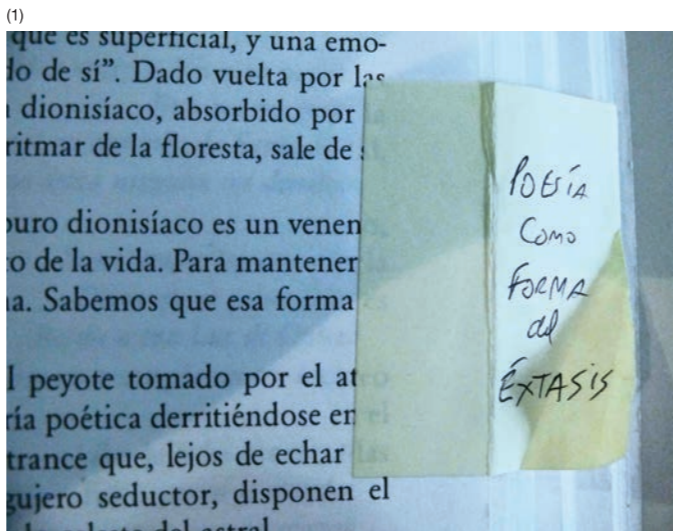 (1)
que es superficial, y una emo-
lo de sí”. Dado vuelta por las
dionisíaco, absorbido por la
ritmar de la floresta, sale de sí.
puro dionisíaco es un veneno,
o de la vida. Para mantener la
na. Sabemos que esa forma es
l peyote tomado por el
ría poética derritiéndose en el
trance que, lejos de echar las
gujero seductor, disponen el
del astral
POESÍA
COMO
FORMA
del
ÉXTASIS